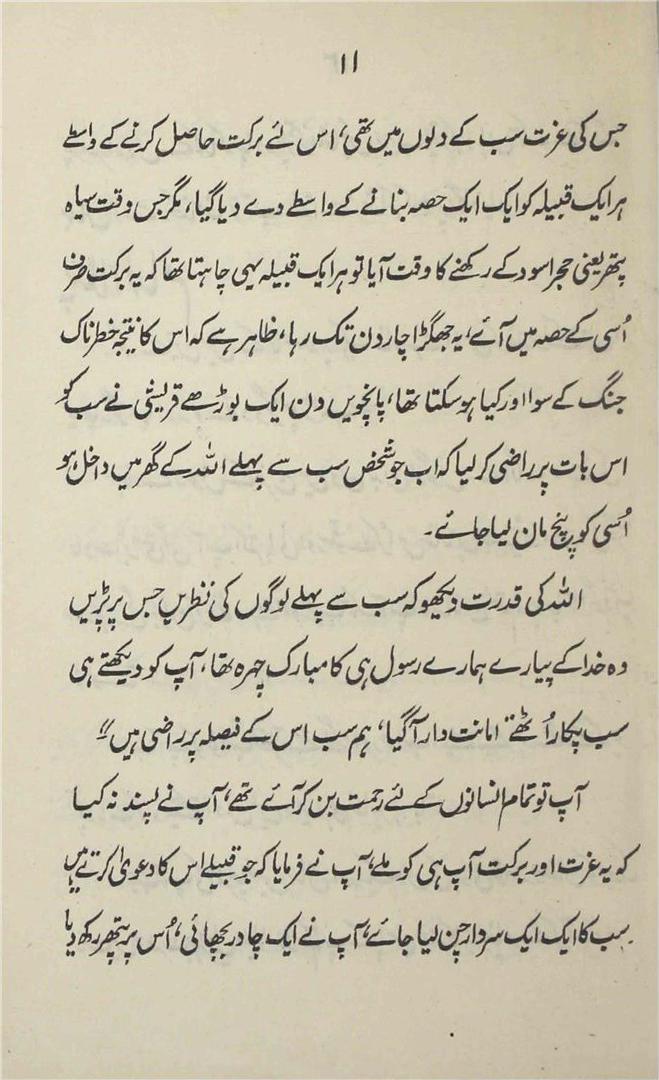 ۱۱
جس کی عزت سب کے دلوں میں تھی، اس لئے برکت حاصل کرنے کے واسطے
ہر ایک قبیلہ کو ایک ایک حصہ بنانے کے واسطے دے دیا گیا، مگر جس وقت سیاہ
پتھر یعنی حجر اسود کے رکھنے کا وقت آیا تو ہر ایک قبیلہ یہی چاہتا تھا کہ یہ برکت صرف
اُسی کے حصہ میں آئے، یہ جھگڑا چار دن تک رہا، ظاہر ہے کہ اس کا نتیجہ خطرناک
جنگ کے سوا اور کیا ہو سکتا تھا، پانچویں دن ایک بوڑھے قریشی نے سب کو
اس بات پر راضی کر لیا کہ اب جو شخص سب سے پہلے اللہ کے گھر میں داخل ہو
اُسی کو پنچ مان لیا جائے۔
اللہ کی قدرت دیکھو کہ سب سے پہلے لوگوں کی نظریں جس پر پڑیں
وہ خدا کے پیارے ہمارے رسول ہی کا مبارک چہرہ تھا، آپ کو دیکھتے ہی
سب پکار اُٹھے امانت دار آگیا، ہم سب اس کے فیصلہ پر راضی ہیں"
آپ تو تمام انسانوں کے لئے رحمت بن کر آئے تھے، آپ نے پسند نہ کیا
کہ یہ عزت اور برکت آپ ہی کو ملے، آپ نے فرمایا کہ جو قبیلے اس کا دعویٰ کرتے ہیں
سب کا ایک ایک سردار چن لیا جائے، آپ نے ایک چادر بچھائی، اُس پر پتھر رکھ دیا